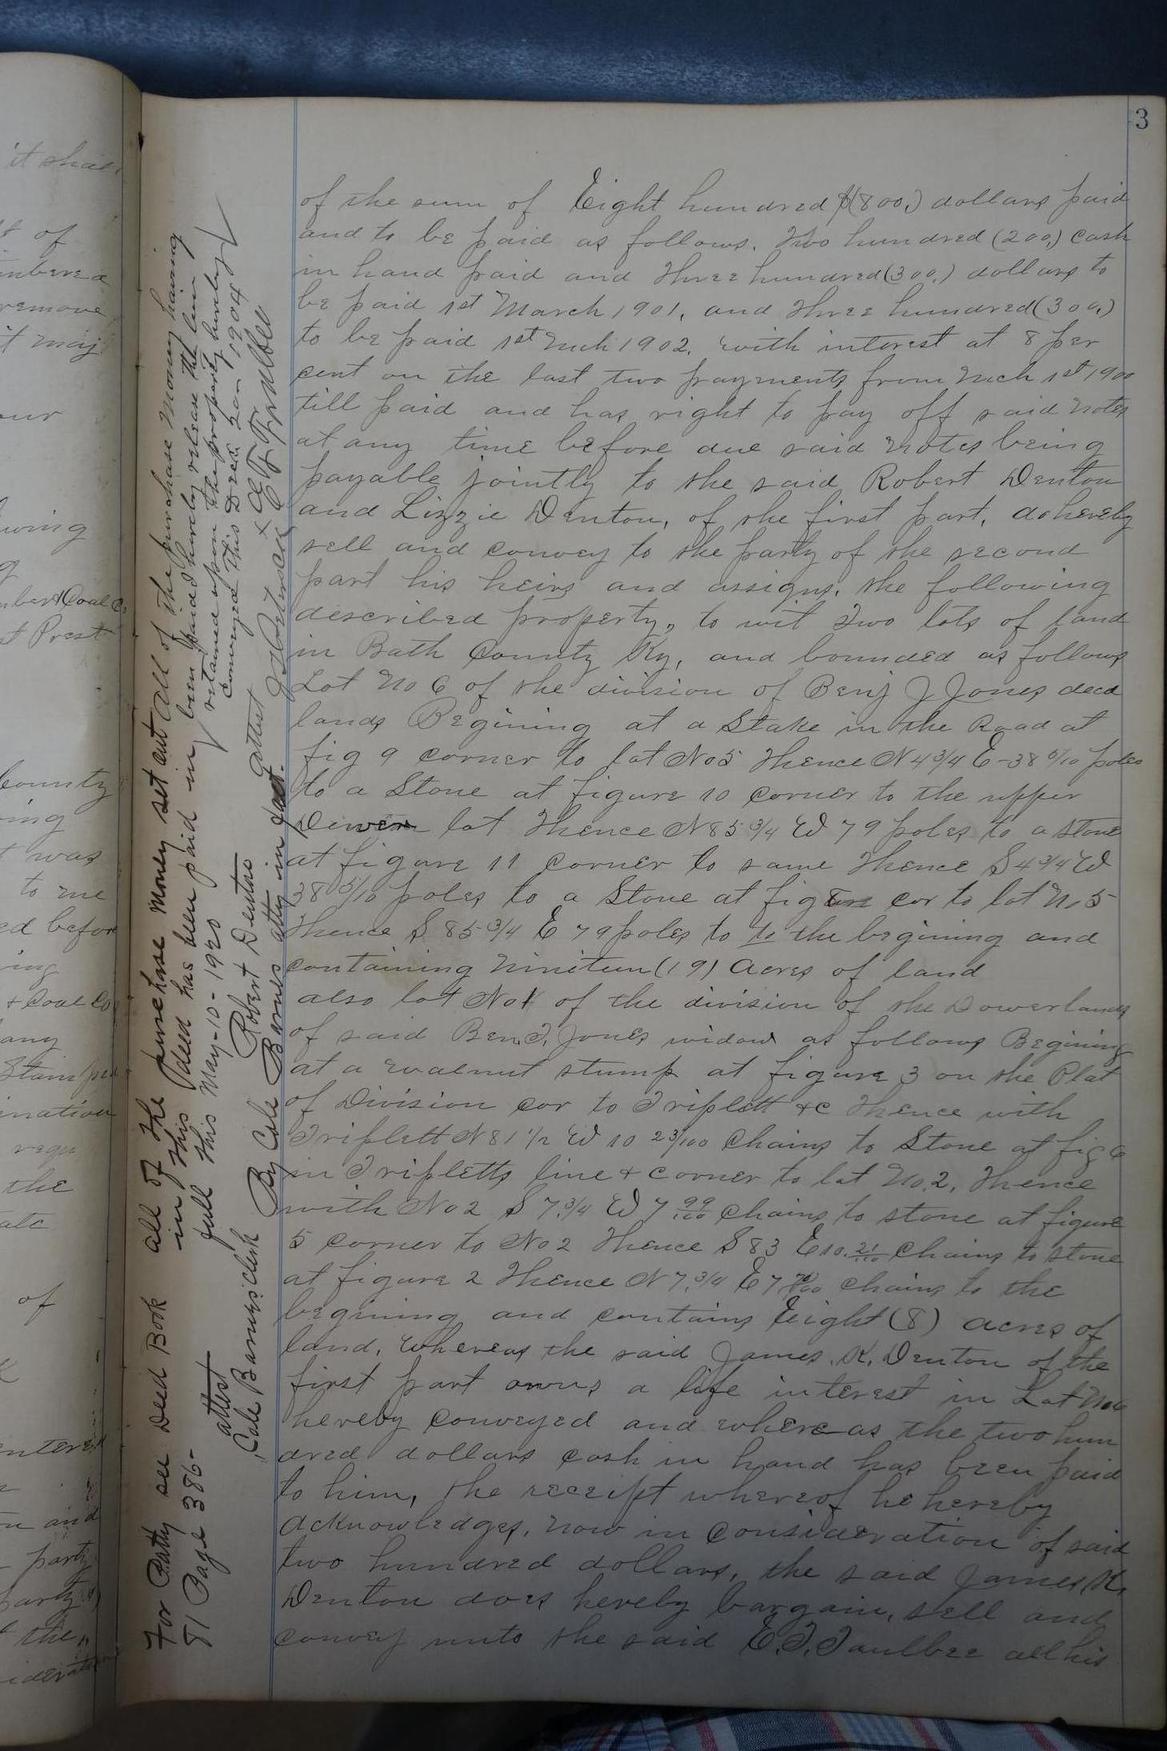 3
of the sum of Eight hundred $(800.) dollars paid
and to be paid as follows. Two hundred (200.) cash
in hand paid and three hundred (300.) dollars to
be paid 1st March 1901. and three hundred (300.)
to be paid 1st Mch 1902. with interest at 8 per
cent on the last two payments from Mch 1st 1900
till paid and has right to pay off said notes
at any time before due said notes being
payable jointly to the said Robert Denton
and Lizzie Denton, of the first part, do hereby
sell and convey to the party of the second
part his heirs and assigns, the following
described property, to wit Two lots of land
in Bath County Ky, and bounded as follows
Lot No 6 of the division of Benj J Jones decd
lands Begining at a Stake in the Road at
fig 9 corner to lot No 5 thence N 4 3/4 E - 38 5/10 poles
to a Stone at figure 10 corner to the upper
Dower lot thence N 85 3/4 W 79 poles to a stone
at figure 11 corner to same thence S 4 3/4 W
38 5/10 poles to a Stone at fig cor to lot No 5
thence S 85 3/4 E 79 poles to to the begining and
containing nineteen (19) acres of land
also lot No 1 of the division of the Dower lands
of said Ben. J. Jones widow as follows Begining
at a walnut stump at figure 3 on the Plat
of Division cor to Triplett &c thence with
Triplett N 81 1/2 W 10 23/100 chains to Stone at fig 6
in Tripletts line & corner to lot No. 2. thence
with No 2 S 7 3/4 W 7 99/100 chains to stone at figure
5 corner to No 2 thence S 83 E 10. 21/100 chains to stone
at figure 2 thence N 7. 3/4 E 7 chains to the
begining and contains Eight (8) acres of
land. whereas the said James. K. Denton of the
first part owns a life interest in Lot No 6
hereby conveyed and where as the two hun
dred dollars cash in hand has been paid
to him, the receipt whereof he hereby
acknowledges, now in consideration of said
two hundred dollars, the said James K.
Denton does hereby bargain, sell and
convey unto the said E. T. Faulbee all his
All of the purchase money having
been paid hereby release the lien
retained upon the property hereby
conveyed this Decr. 2 1904
attest
all of the purchase money set out
in this deed has been paid in
full this May-10-1920
Robert Denton
By Cale Barnes atty in fact.
attest
Cale Barnes clerk
For Party see Deed Book
91 Page 386-